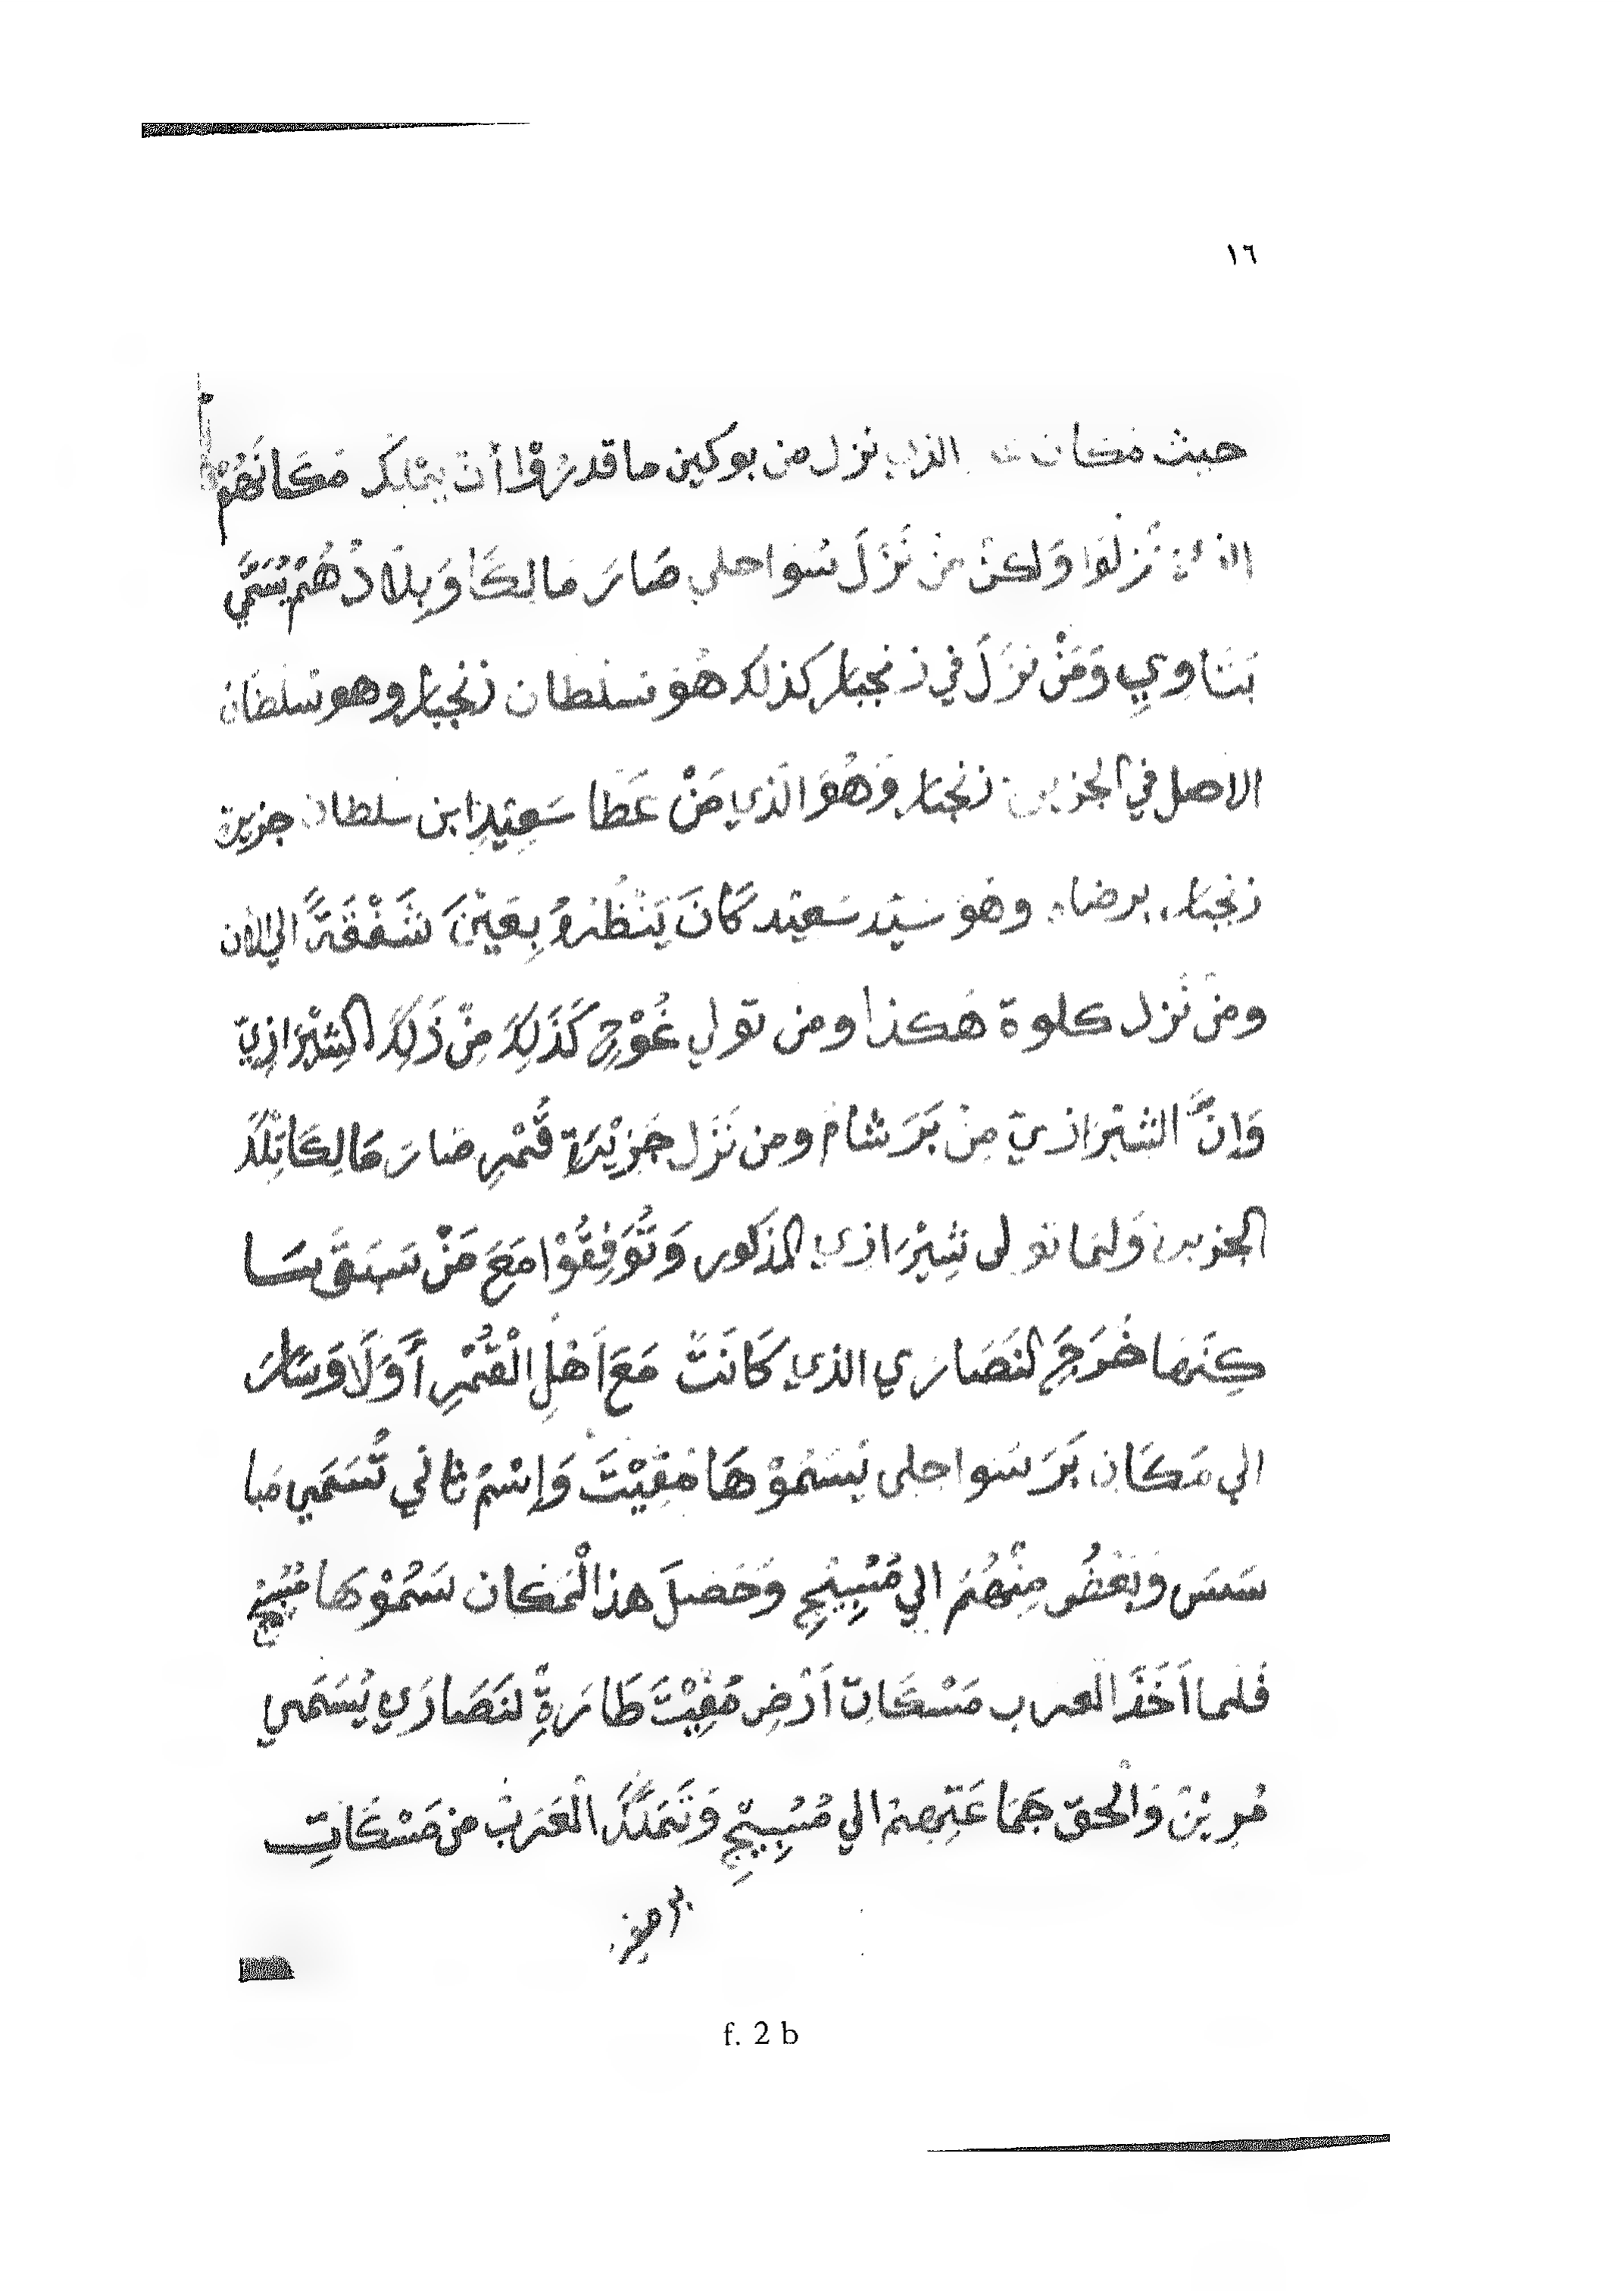 ١٦
حيث مكان الذي نزل من بوكين ما قدرُوْا أن يتملك مَكَانَهُمْ
نُزِلُوا وَلكن من نَزَلَ سَواحلي صَارَ مَالِكَا وَبِلَادُهُمْ يُسَمَّي
بَتَاوِي وَمَنْ نَزَلَ في زنجبار كذلك هُوَ سلطان زنجبار وهو سلطان
الاصل في الجزيرة زنجبار وَهُوَ الَّذي مَنْ عَطَا سَعِيْدِ ابن سلطان جزيرة
زنجبار برضاه وهو سَيّد سَعيْد كَانَ يَنْظُرُهُ بِعَيْنَ شَفْقَةً الي الان
ومن نَزل كلوة هَكذا ومن تولي غُوْجِ كَذَلِكَ مِنْ ذَلِكَ الشِيْرَازِيّ
وَاِنَّ الشيْرَازيّ مِنْ بَرَ شام ومن نَزَل جَزِيْرَةِ قُمْرِ صَارَ مَالِكَا بِتْلَكَ
الجزيرة وَلما تولى شِيْرَازي المذكور وَتُوَفِقُوْا مَعَ مَنْ سَبَقَ سَا
كِنَهَا خَرَجَ لنَصَارَي الذي كَانَتْ مَعَ اَهْلِ الْقُمْرِ أَوَلَا وَسَارَ
الي مَكَان بَرَ سَواحلى يَسَمُوْ هَا مُفِيْتَ وَإسْمُ ثاني تُسَمَي مَبا
سَسَ وَبَعْضُ مِنْهُمْ الي مُسُبِيْجِ وَحَصلَ هذ الْمَكان سَمُوْ هَا مُسُبِيْج
فَلما اَخَذَ العرب مَسْكَات اَرْضِ مُفِيْتَ طَارَةِ لنَصَارَي يُسَمَي
مُرِيْنْ وَالْحق جَمَا عَتِهِمْ الي مُسُبِيْجِ وَتَمَلَكَ الْعَرَبْ من مَسْكَاتِ
f. 2 b